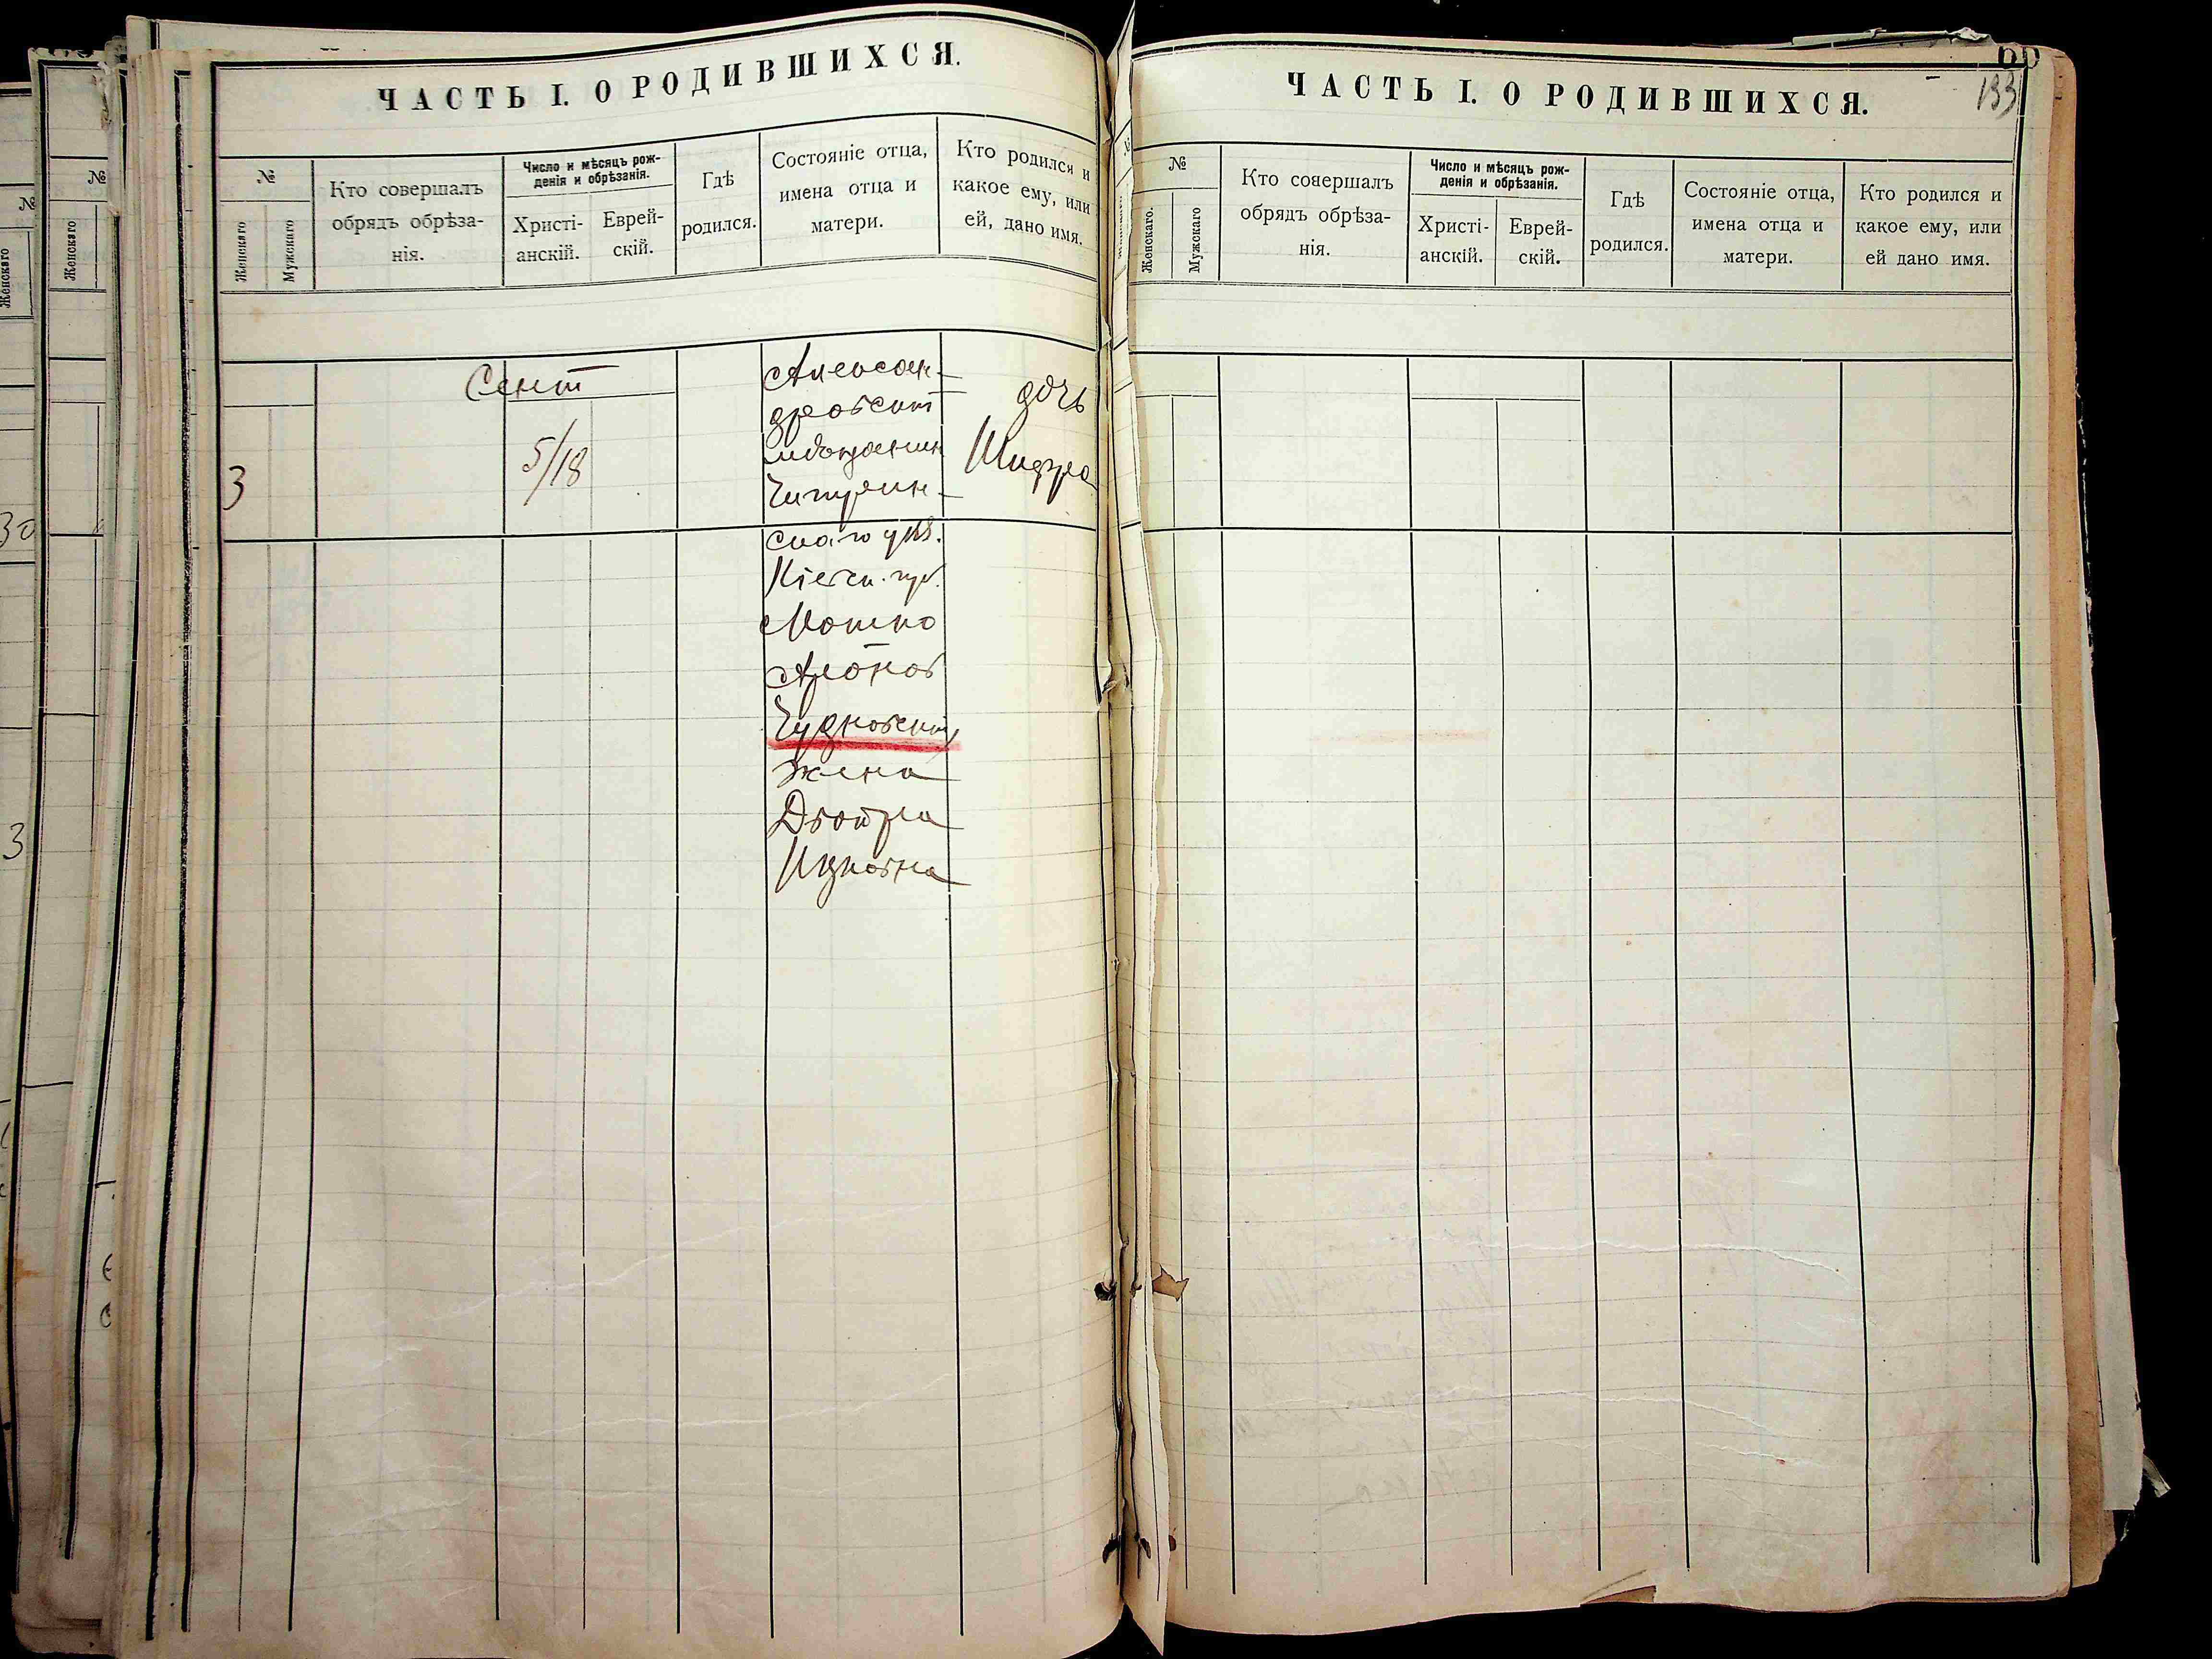 ЧАСТЬ I. О РОДИВШИХСЯ.
№
Женскаго
Мужскаго
Кто совершалъ
обрядъ обрѣза-
нія.
Число и мѣсяцъ рож-
денія и обрѣзанія.
Христі-
анскій.
Еврей-
скій.
Гдѣ
родился.
Состояніе отца,
имена отца и
матери.
Кто родился и
какое ему, или
ей, дано имя.
Сент
3
5/18
Алексан-
дровскій
мѣщанин
Чигирин-
скаго уѣз.
Кіевск. губ.
Мошко
Аронов
Чудновскій
жена
Двойра
Ицковна
дочь
Шифра
ЧАСТЬ I. О РОДИВШИХСЯ.
133
№
Женскаго.
Мужскаго
Кто совершалъ
обрядъ обрѣза-
нія.
Число и мѣсяцъ рож-
денія и обрѣзанія.
Христі-
анскій.
Еврей-
скій.
Гдѣ
родился.
Состояніе отца,
имена отца и
матери.
Кто родился и
какое ему, или
ей дано имя.
№
Женскаго
№
Женскаго
30
3